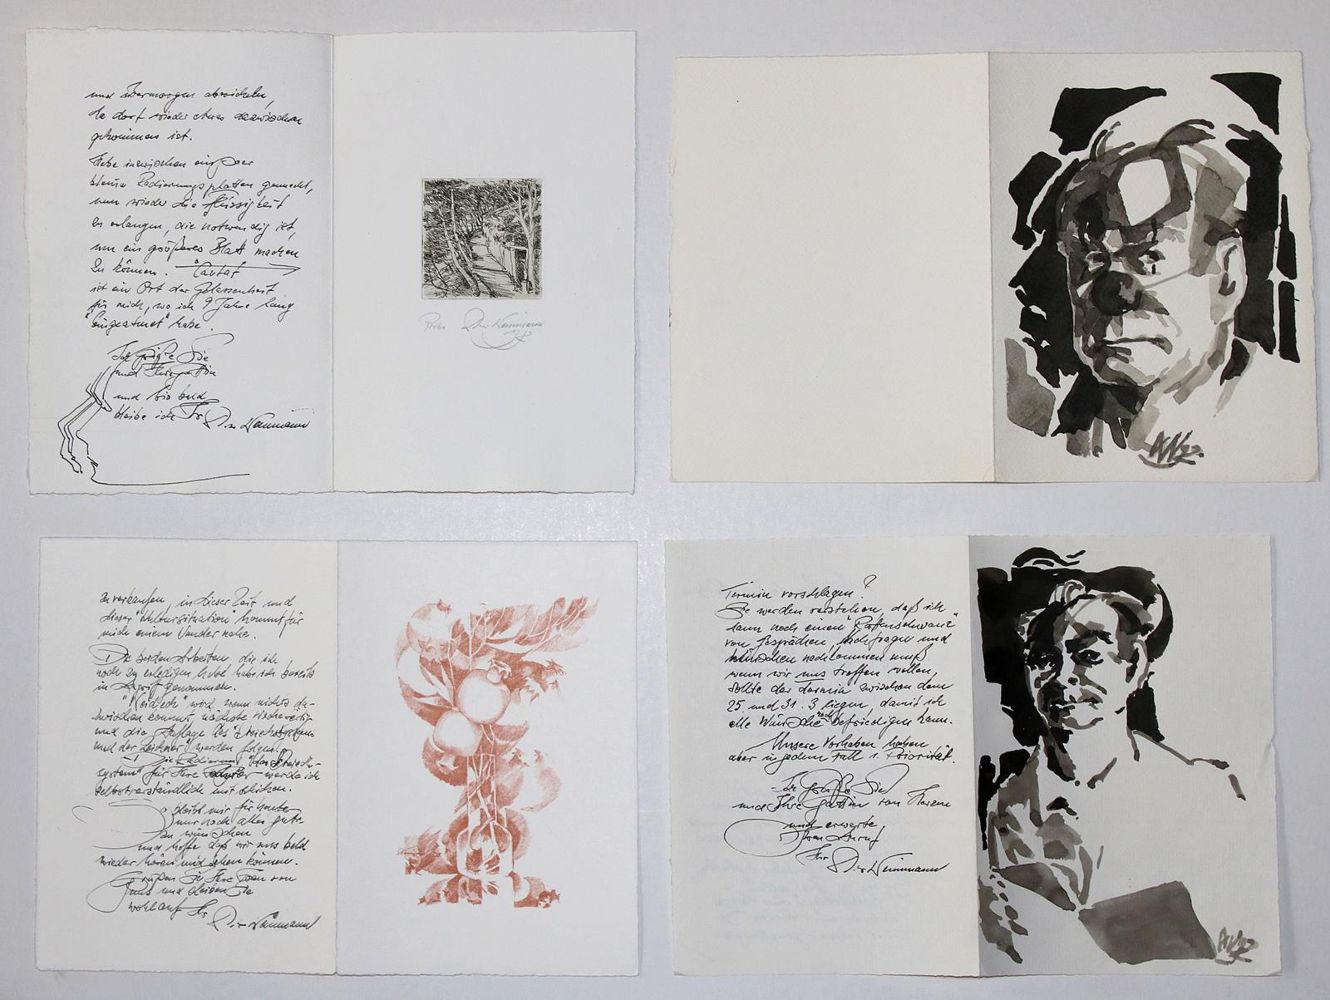 und übermorgen abwickeln,
da dort wieder etwas dazwischen
gekommen ist.
Habe inzwischen ein paar
kleine Radierungsplatten gemacht,
um wieder die Flüssigkeit
zu erlangen, die notwendig ist,
um ein größeres Blatt machen
zu können. "Cavtat"
ist ein Ort der Gelassenheit
für mich, wo ich 9 Jahre lang
"eingeatmet" habe.
Ich grüße Sie
und Ihre Gattin
und bis bald
bleibe ich Ihr
zu verkaufen, in dieser Zeit und
dieser "Kultursituation" kommt für
mich einem Wunder nahe.
Die beiden Arbeiten die ich
noch zu erledigen habe habe ich bereits
in Angriff genommen.
wird, wenn nichts da-
zwischen kommt, nächste Woche fertig
und die Auflage des
und der Zeichner werden folgen.
Die Radierung
system für Ihre werde ich
selbstverständlich mit schicken.
bleibt mir für heute
nur noch alles gute
zu wünschen
und hoffe daß wir uns bald
wieder hören und sehen können.
grüßen Sie Ihre Frau von
uns und bleiben Sie
wohlauf Ihr
Termin vorschlagen?
Sie werden verstehen, daß ich
dann noch einen "Rattenschwanz"
von Gesprächen, Nachfragen und
Wünschen nachkommen muß
wenn wir uns treffen wollen,
sollte der Termin zwischen dem
25. und 31. 3 liegen, damit ich
alle Wünsche noch befriedigen kann.
Unsere Vorhaben haben
aber in jedem Fall 1. Priorität.
Ich grüße Sie
und Ihre Gattin von Herzen
und erwarte
Ihren Anruf
Ihr